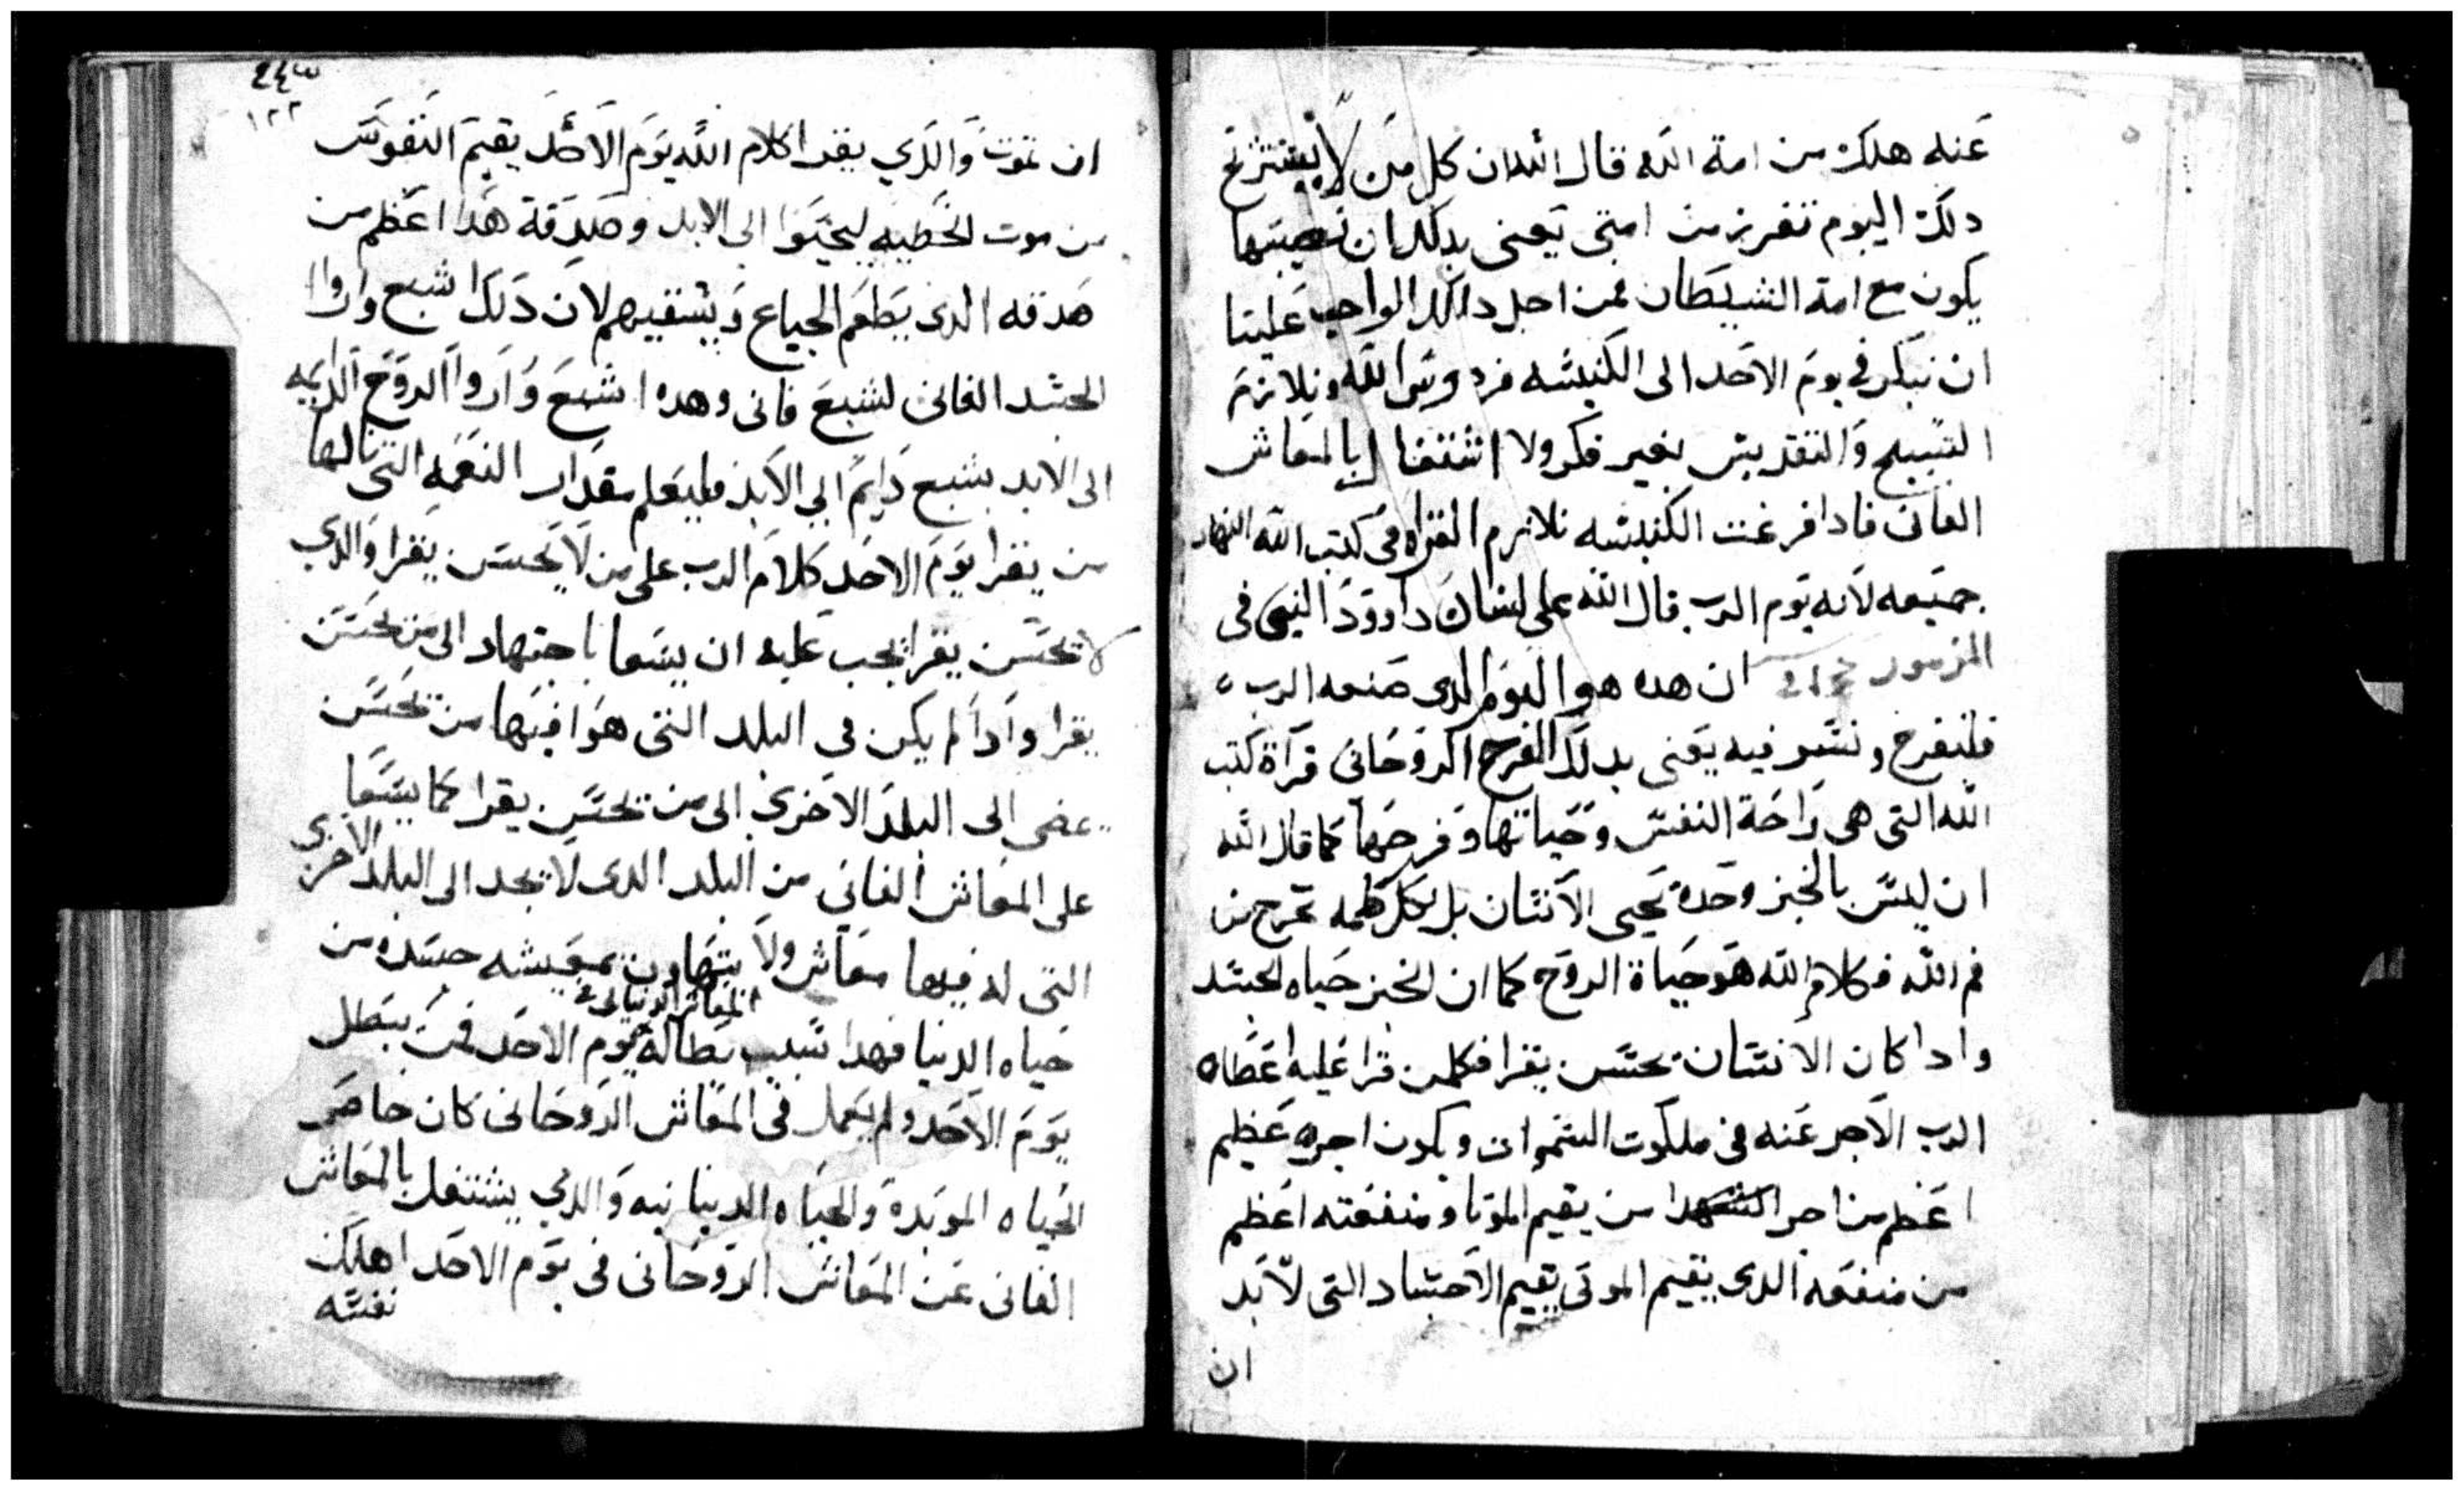 عنه هلك من امة الله قال الله ان كل من لا يستريح
دلك اليوم تفرز من امتى يعنى بدلك ان نصيبها
يكون مع امة الشيطان فمن اجل دالك الواجب علينا
ان نبكر فى يوم الاحد الى الكنيسه فردوس الله ونلازم
التسبيح والتقديس بغير فكر ولا اشتغال بالمعاش
الفانى فادا فرغت الكنيسه نلازم القراه فى كتب الله النهار
جميعه لانه يوم الرب قال الله على لسان داوود النبى فى
المزمور ان هده هو اليوم الدى صنعه الرب
فلنفرح ونسر فيه يعنى بدلك الفرح الروحانى قراة كتب
الله التى هى راحة النفس وحياتها وفرحها كما قال الله
ان ليس بالخبز وحده يحيى الانسان بل بكل كلمه تخرج من
فم الله فكلام الله هو حياة الروح كما ان الخبز حياه الجسد
وادا كان الانسان يحسن يقرا فكلمن قرا عليه اعطاه
الرب الاجر عنه فى ملكوت السموات ويكون اجره عظيم
اعظم من اجر من يقيم الموتا ومنفعته اعظم
من منفعه الدى يقيم الموتى يقيم الاجساد التى لا بد
ان
٢٤٣
١٢٢
ان تموت والدي يقرا كلام الله يوم الاحد يقيم النفوس
من موت الخطيه ليحيوا الى الابد وصدقة هدا اعظم من
صدقه الدى يطعم الجياع ويسقيهم لان دلك اشبع واروا
الجسد الفانى لشبع فانى وهده اشبع واروا الروح الدايمه
الى الابد بشبع دايم الى الابد فليعلم مقدار النعمه التى نالها
من يقرا يوم الاحد كلام الرب على من لا يحسن يقرا والدي
لا يحسن يقرا يجب عليه ان يسعا باجتهاد الى من يحسن
يقرا وادا لم يكن فى البلد التى هوا فيها من يحسن
يمضى الى البلد الاخرى الى من يحسن يقرا كما يسعا
على المعاش الفانى من البلد الدى لا يجد الى البلد الاخرى
التى له فيها معاش ولا يتهاون بمعيشه جسده من
المعاش الدنيانى
حياه الدنيا فهدا سبب بطالة يوم الاحد فمن يبطل
يوم الاحد ولم يعمل فى المعاش الروحانى كان خاصر
الحياه الموبدة والحياه الدنيانيه والدي يشتغل بالمعاش
الفانى عن المعاش الروحانى فى يوم الاحد اهلك
نفسه